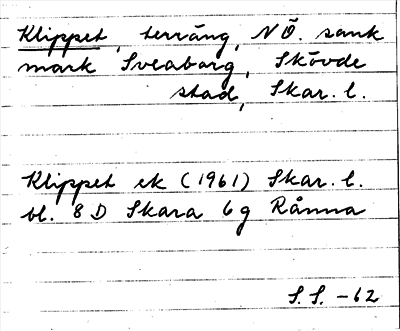 Klippet, terräng, NÖ. sank
mark Sveaborg, Skövde
stad, Skar. l.
Klippet ek (1961) Skar. l.
bl. 8 D Skara 6g Rånna
S. S. -62